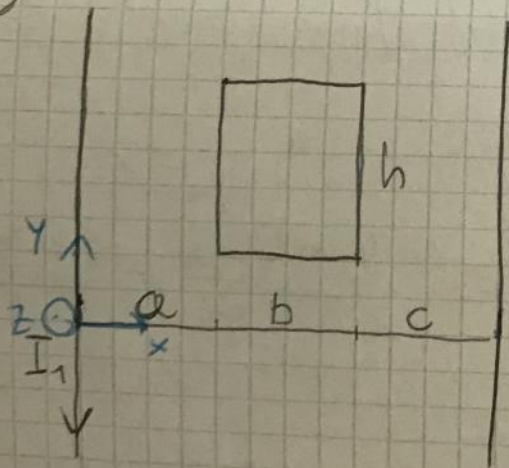 h
Y
Z
a b c
x
I₁